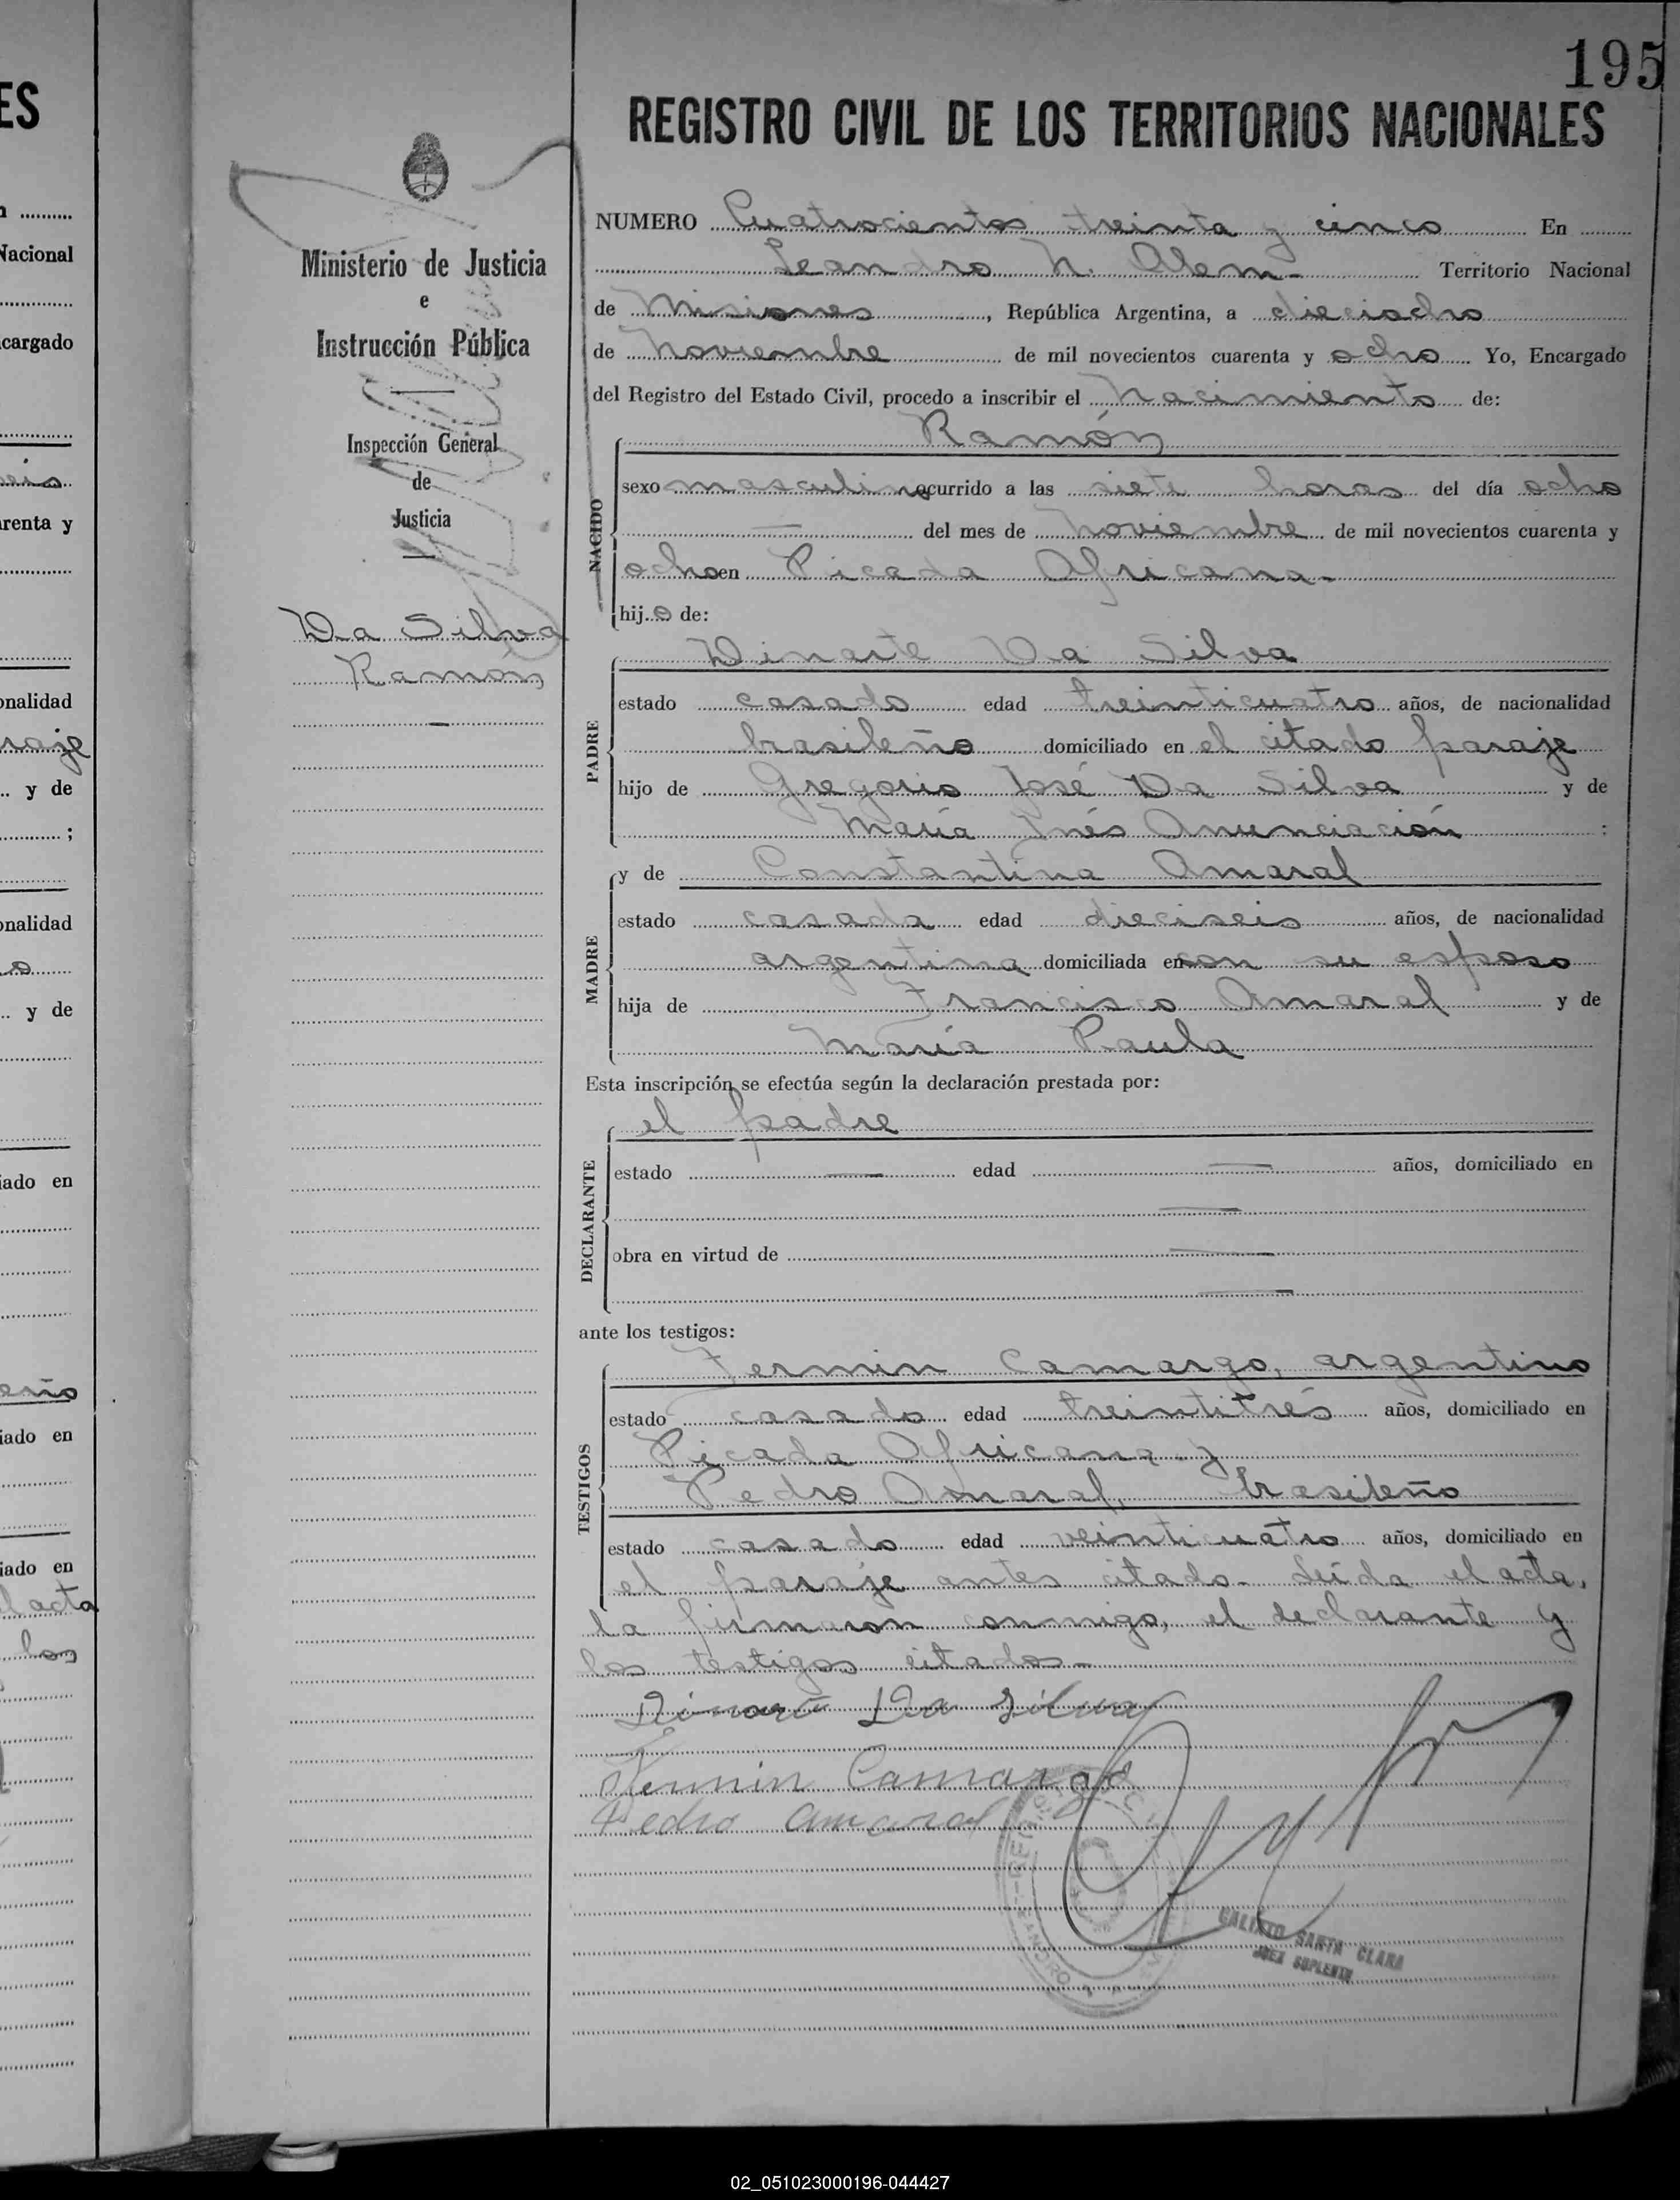 195
REGISTRO CIVIL DE LOS TERRITORIOS NACIONALES
Ministerio de Justicia
e
Instrucción Pública
Inspección General
de
Justicia
Da Silva
Ramón
NUMERO Cuatrocientos treinta y cinco En
Leandro N. Alem- Territorio Nacional
de Misiones, República Argentina, a dieciocho
de Noviembre de mil novecientos cuarenta y ocho Yo, Encargado
del Registro del Estado Civil, procedo a inscribir el Nacimiento de:
Ramón
NACIDO
sexo masculino ocurrido a las siete horas del día ocho
— del mes de Noviembre de mil novecientos cuarenta y
ocho en Picada Africana-
hijo de:
Dinarte Da Silva
PADRE
estado casado edad treinticuatro años, de nacionalidad
brasileño domiciliado en el citado paraje
hijo de Gregorio José Da Silva y de
María Inés Anunciación ;
y de Constantina Amaral
MADRE
estado casada edad dieciseis años, de nacionalidad
argentina domiciliada en con su esposo
hija de Francisco Amaral y de
María Paula
Esta inscripción se efectúa según la declaración prestada por:
el padre
DECLARANTE
estado — edad — años, domiciliado en
—
obra en virtud de —
—
ante los testigos:
Fermin Camargo, argentino
TESTIGOS
estado casado edad treintitrés años, domiciliado en
Picada Africana y
Pedro Amaral, brasileño
estado casado edad veinticuatro años, domiciliado en
el paraje antes citado- Leída el acta,
la firmaron conmigo, el declarante y
los testigos citados-
Dinarte Da Silva
Fermin Camargo
Pedro Amaral
CALIXTO SANTA CLARA
JUEZ SUPLENTE
ES
Nacional
cargado
renta y
onalidad
raje
y de
;
onalidad
y de
iado en
eño
iado en
iado en
l acta
los
02_051023000196-044427